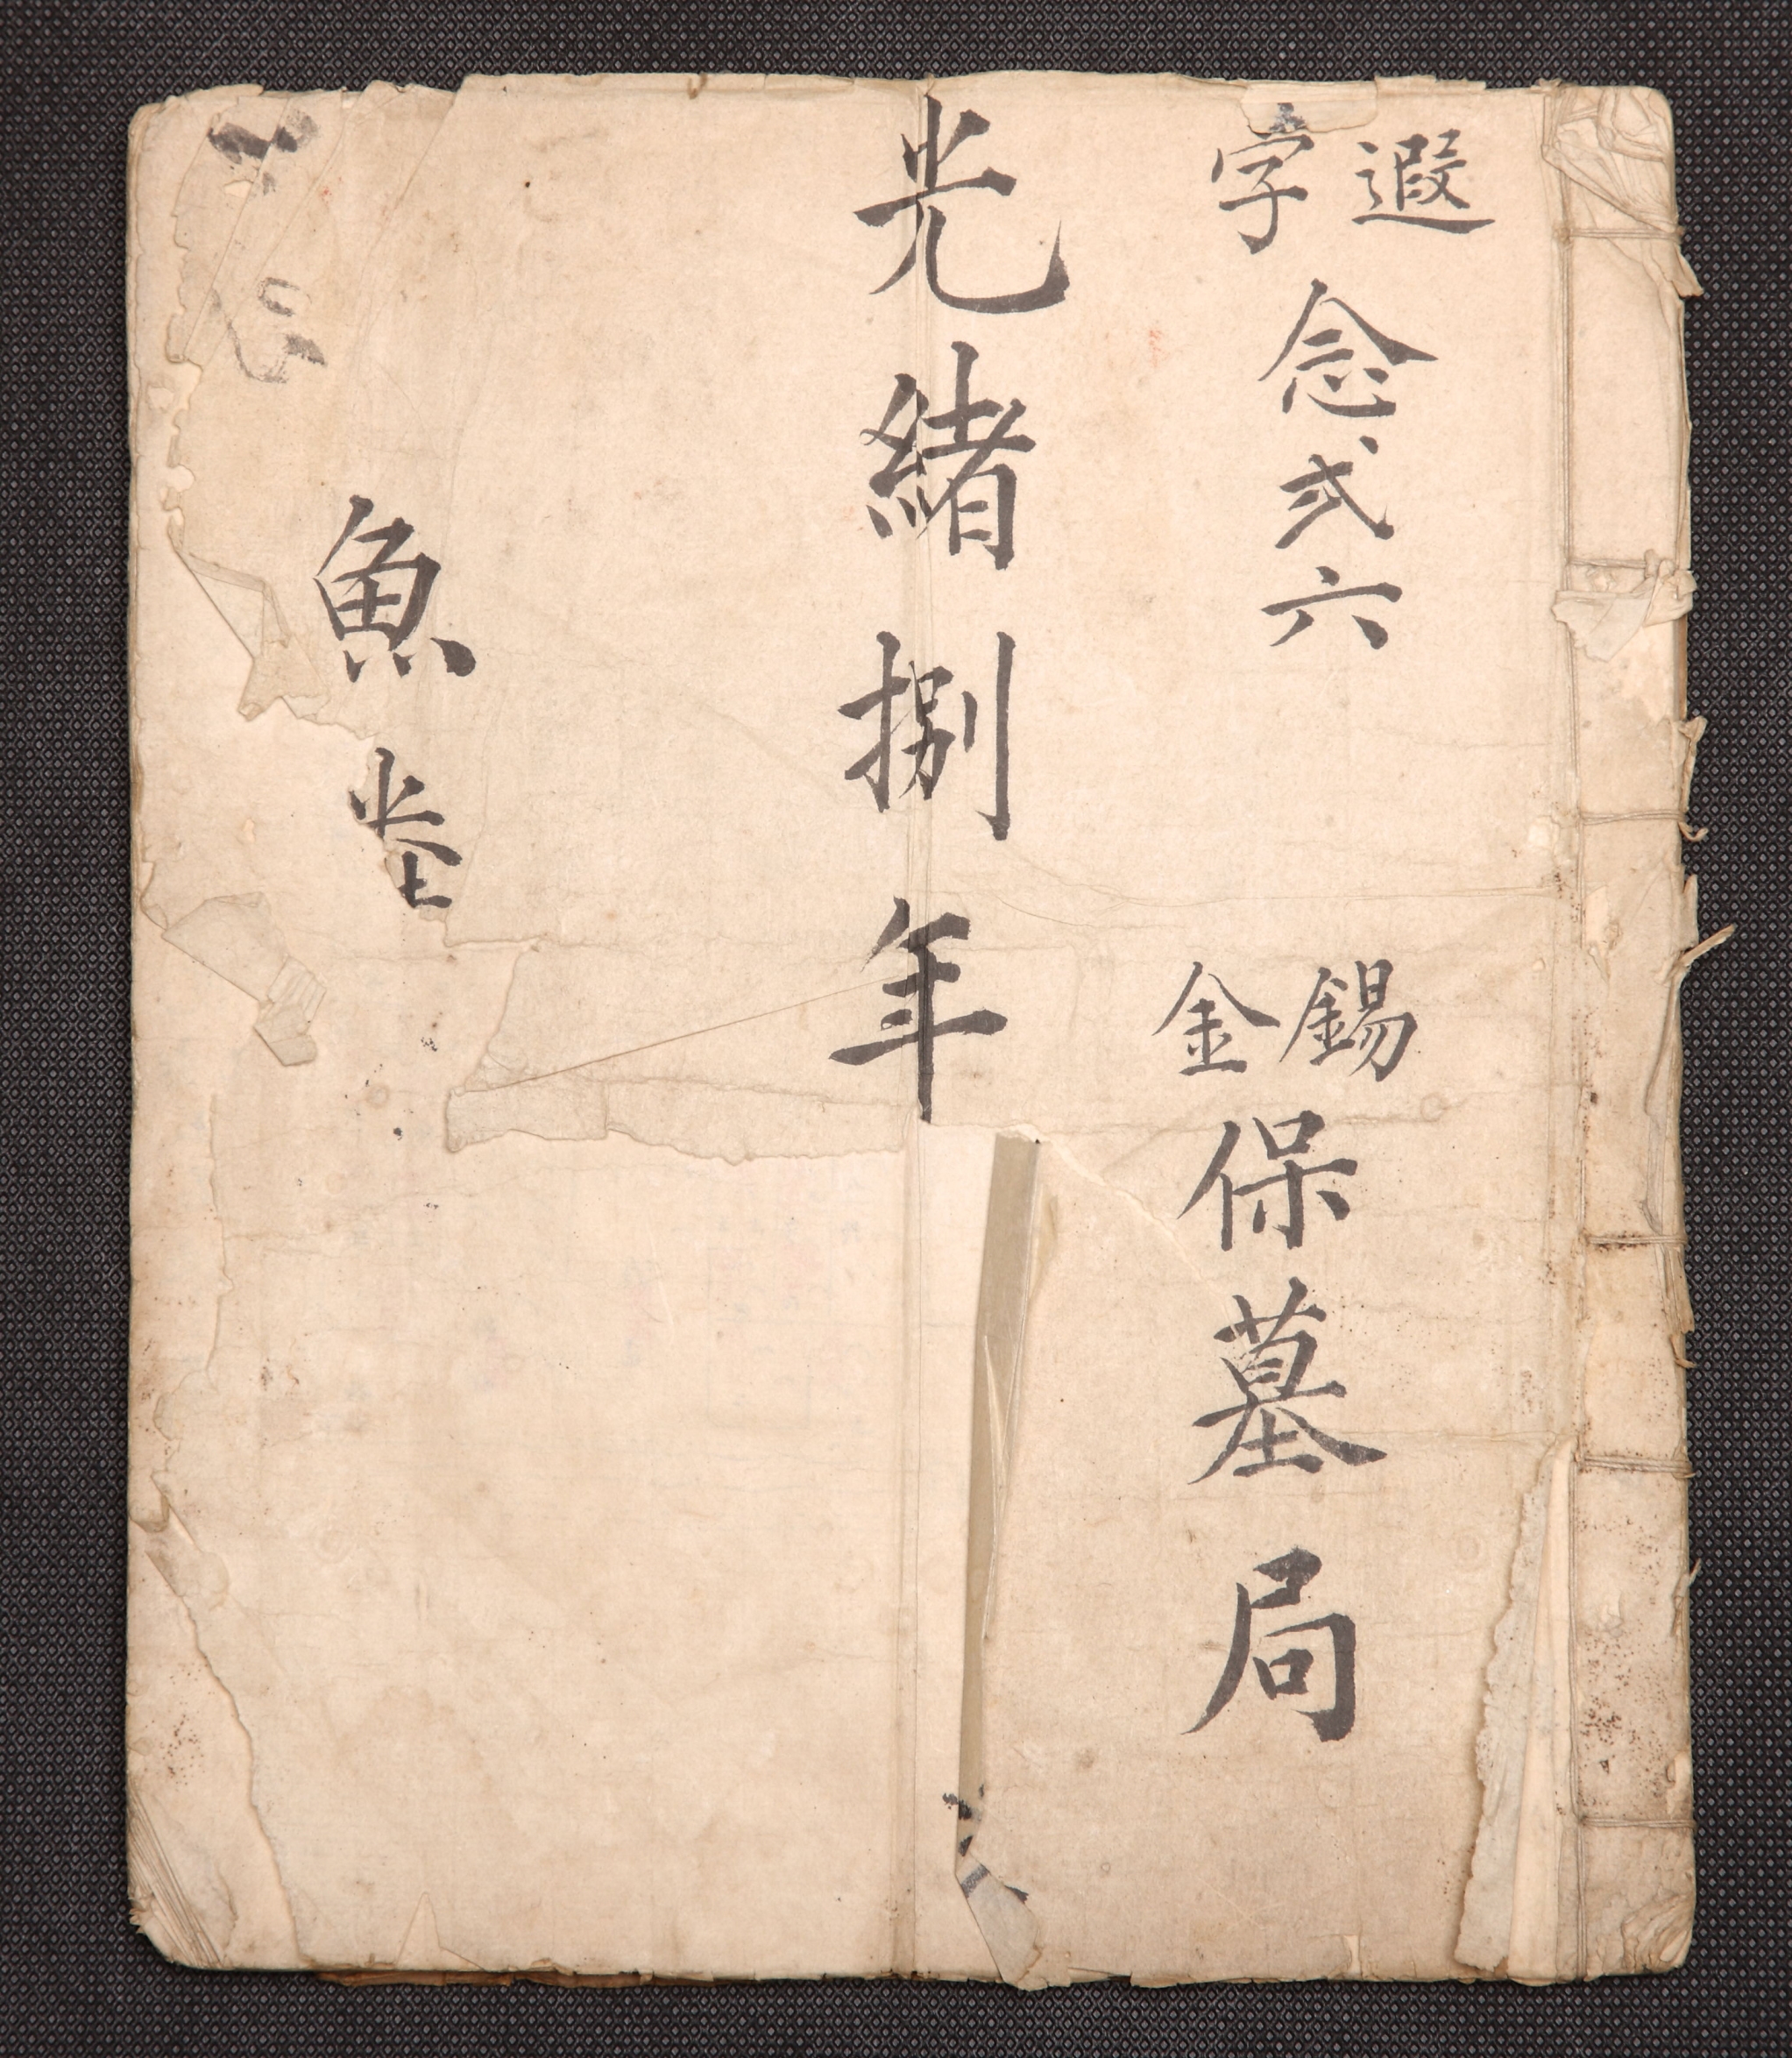 遐字念弍六 錫金保墓局
光緒捌年
魚